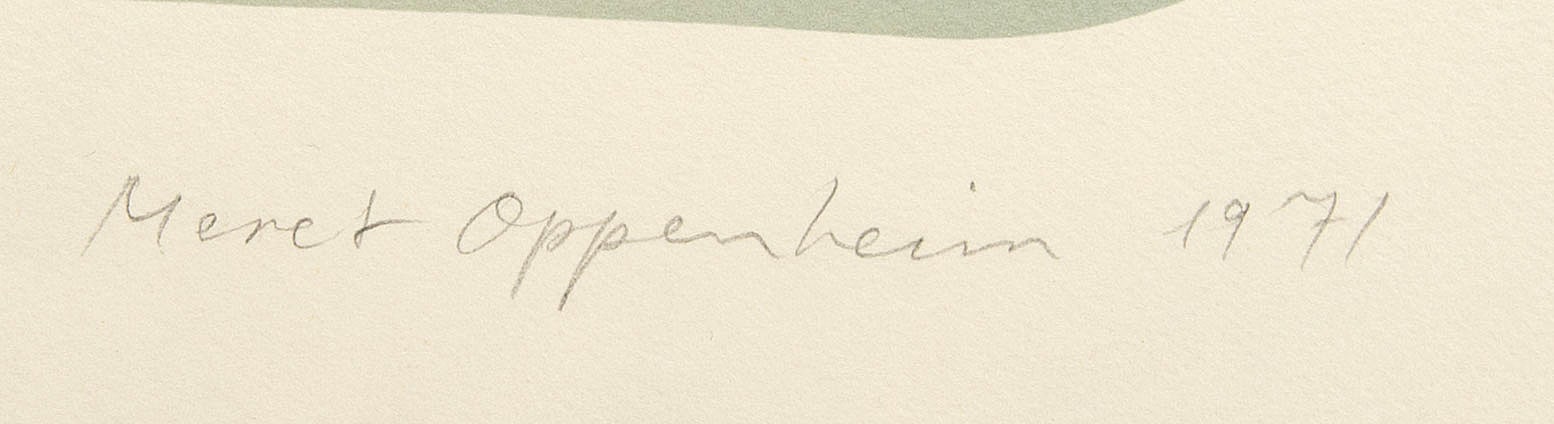 Meret Oppenheim 1971